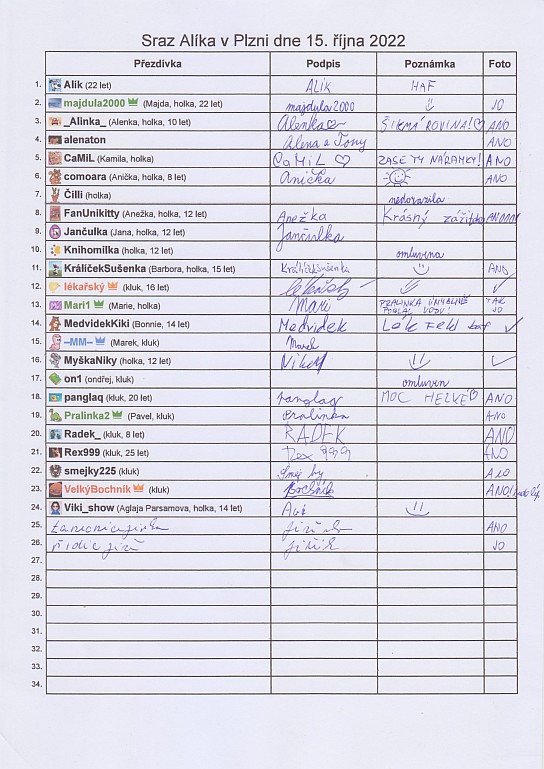 Sraz Alíka v Plzni dne 15. října 2022
Přezdívka Podpis Poznámka Foto
1. Alik (22 let) ALIK HAF
2. majdula2000 (Majda, holka, 22 let) majdula2000 JO
3. _Alinka_ (Alenka, holka, 10 let) Alenka ŠIKMÁ ROVINA! ANO
4. alenaton Alena a Tony ANO
5. CaMiL (Kamila, holka) CaMiL ZASE TY NÁRAMKY! ANO
6. comoara (Anička, holka, 8 let) Anička ANO
7. Čilli (holka) nedorazila
8. FanUnikitty (Anežka, holka, 12 let) Anežka Krásný zážitek
9. Jančulka (Jana, holka, 12 let) Jančulka
10. Knihomilka (holka, 12 let) omluvena
11. KrálíčekSušenka (Barbora, holka, 15 let) KrálíčekSušenka ANO
12. lékařský (kluk, 16 let) lékařský
13. Mari1 (Marie, holka) Mari PRALINKA ÚMYSLNĚ PODLAL VODU! TAK JO
14. MedvidekKiki (Bonnie, 14 let) Medvidek
15. –MM– (Marek, kluk) Marek
16. MyškaNiky (holka, 12 let)
17. on1 (ondřej, kluk) omluven
18. panglaq (kluk, 20 let) panglaq MOC HEZKÉ ANO
19. Pralinka2 (Pavel, kluk) Pralinka ANO
20. Radek_ (kluk, 8 let) RADEK ANO
21. Rex999 (kluk, 25 let) Rex 999 ANO
22. smejky225 (kluk) ANO
23. VelkýBochník (kluk) Bochník ANO!
24. Viki_show (Aglaja Parsamova, holka, 14 let)
25. ANO
26. řidič jiří Jiřík JO
27.
28.
29.
30.
31.
32.
33.
34.